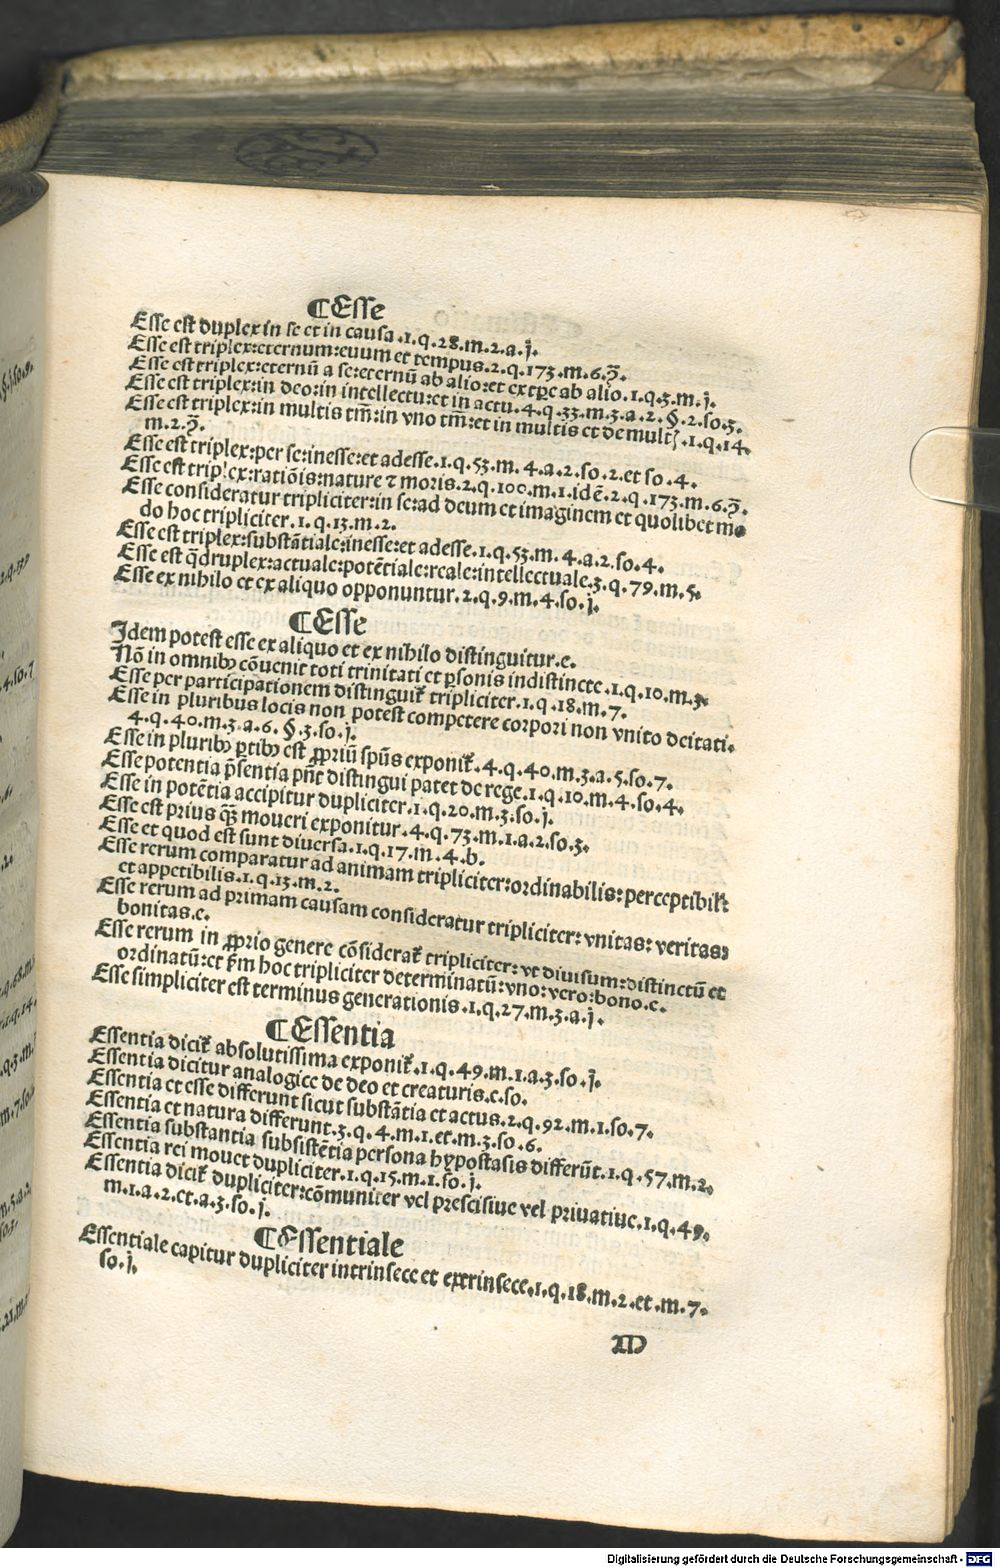 ¶Esse
Esse est duplex in se et in causa .1.q.28.m.2.a.j̄.
Esse est triplex:eternum:euum et tempus.2.q.173.m.6.ꝯ̄.
Esse est triplex:eternū a se:eternū ab alio:et extꝑe ab alio.1.q.5.m.j̄.
Esse est triplex:in deo:in intellectu:et in actu.4.q.33.m.3.a.2.§.2.so.5.
Esse est triplex:in multis tm̄:in vno tm̄:et in multis et de multꝭ.1.q.14.
m.2.ꝯ̄.
Esse est triplex:per se:inesse:et adesse.1.q.53.m.4.a.2.so.2.et so.4.
Esse est triplex:ratiōis:nature ⁊ moris.2.q.100.m.1.idē.2.q.173.m.6.ꝯ̄.
Esse consideratur tripliciter:in se:ad deum et imaginem et quolibet mo
do hoc tripliciter.1.q.13.m.2.
Esse est triplex:substātiale:inesse:et adesse.1.q.53.m.4.a.2.so.4.
Esse est q̄druplex:actuale:potētiale:reale:intellectuale.3.q.79.m.5.
Esse ex nihilo et ex aliquo opponuntur.2.q.9.m.4.so.j̄.
¶Esse
Idem potest esse ex aliquo et ex nihilo distinguitur.e.
Nō in omnibꝫ cōuenit toti trinitati et ꝑsonis indistincte.1.q.10.m.3.
Esse per participationem distinguiť tripliciter.1.q.18.m.7.
Esse in pluribus locis non potest competere corpori non vnito deitati.
4.q.40.m.3.a.6.§.3.so.j̄.
Esse in pluribꝫ ꝑtibꝫ est ꝓpriū spūs exponiť.4.q.40.m.3.a.5.so.7.
Esse potentia p̄sentia pn̄t distingui patet de rege.1.q.10.m.4.so.4.
Esse in potētia accipitur dupliciter.1.q.20.m.3.so.j̄.
Esse est prius q̄ꝫ moueri exponitur.4.q.73.m.1.a.2.so.3.
Esse et quod est sunt diuersa.1.q.17.m.4.b.
Esse rerum comparatur ad animam tripliciter:ordinabilis:perceptibilꝭ
et appetibilis.1.q.13.m.2.
Esse rerum ad primam causam consideratur tripliciter:vnitas:veritas:
bonitas.e.
Esse rerum in ꝓprio genere cōsiderať tripliciter:vt diuisum:distinctū et
ordinatū:et ẜm hoc tripliciter determinatū:vno:vero:bono.e.
Esse simpliciter est terminus generationis.1.q.27.m.3.a.j̄.
¶Essentia
Essentia diciť absolutissima exponiť.1.q.49.m.1.a.3.so.j̄.
Essentia dicitur analogice de deo et creaturis.e.so.
Essentia et esse differunt sicut substātia et actus.2.q.92.m.1.so.7.
Essentia et natura differunt.3.q.4.m.1.et.m.3.so.6.
Essentia substantia subsistētia persona hypostasis differūt.1.q.57.m.2.
Essentia rei mouet dupliciter.1.q.15.m.1.so.j̄.
Essentia diciť dupliciter:cōmuniter vel prescisiue vel priuatiue.1.q.49.
m.1.a.2.et.a.3.so.j̄.
¶Essentiale
Essentiale capitur dupliciter intrinsece et extrinsece.1.q.18.m.2.et.m.7.
so.j̄.
M
Digitalisierung gefördert durch die Deutsche Forschungsgemeinschaft - DFG